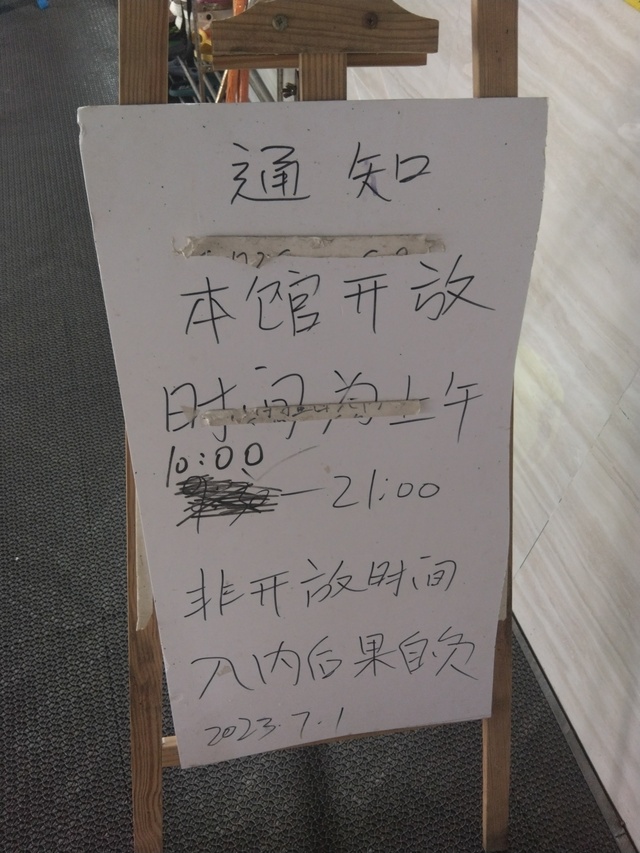 通知
本馆开放
时间为上午
10:00
—21:00
非开放时间
入内后果自负
2023.7.1